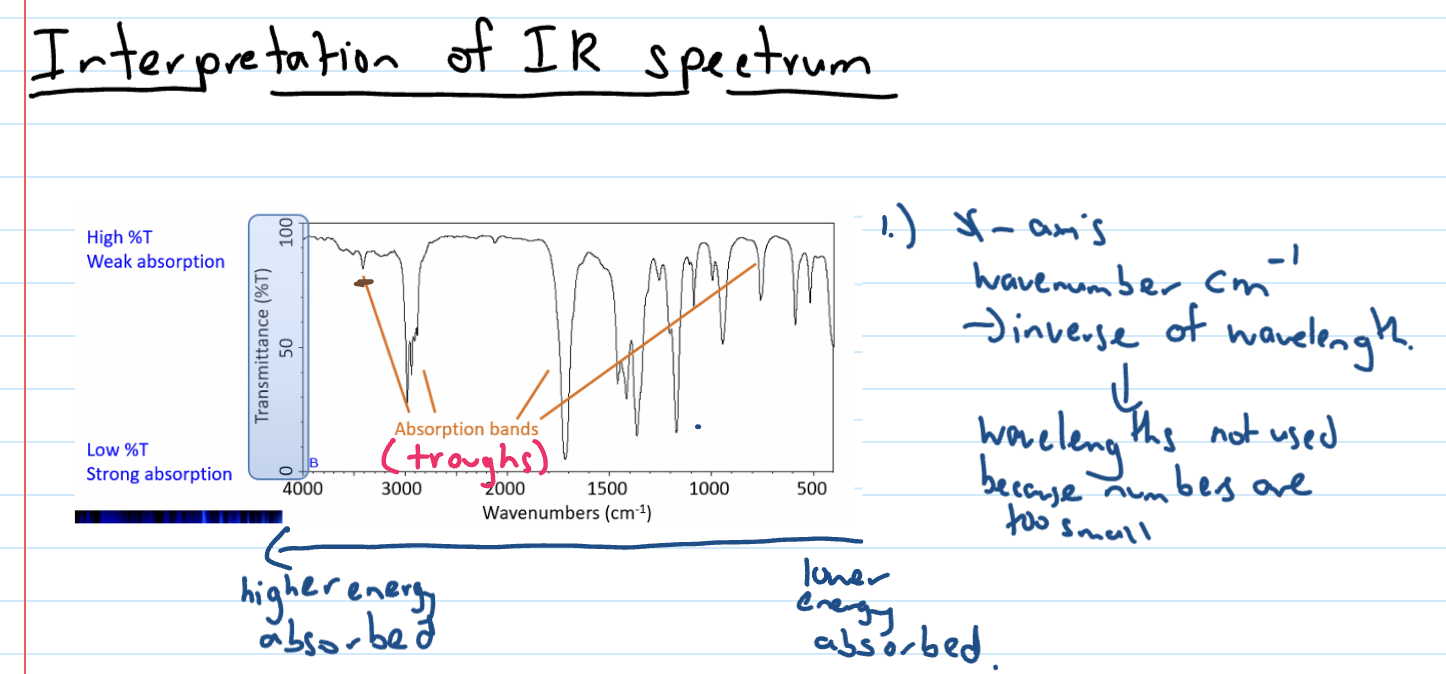 Interpretation of IR spectrum
High %T
Weak absorption
Low %T
Strong absorption
Transmittance (%T)
100
50
0
B
Absorption bands
(troughs)
4000 3000 2000 1500 1000 500
Wavenumbers (cm⁻¹)
higher energy
absorbed
lower
energy
absorbed.
1.) X-axis
wavenumber cm⁻¹
→ inverse of wavelength.
↓
wavelengths not used
because numbers are
too small